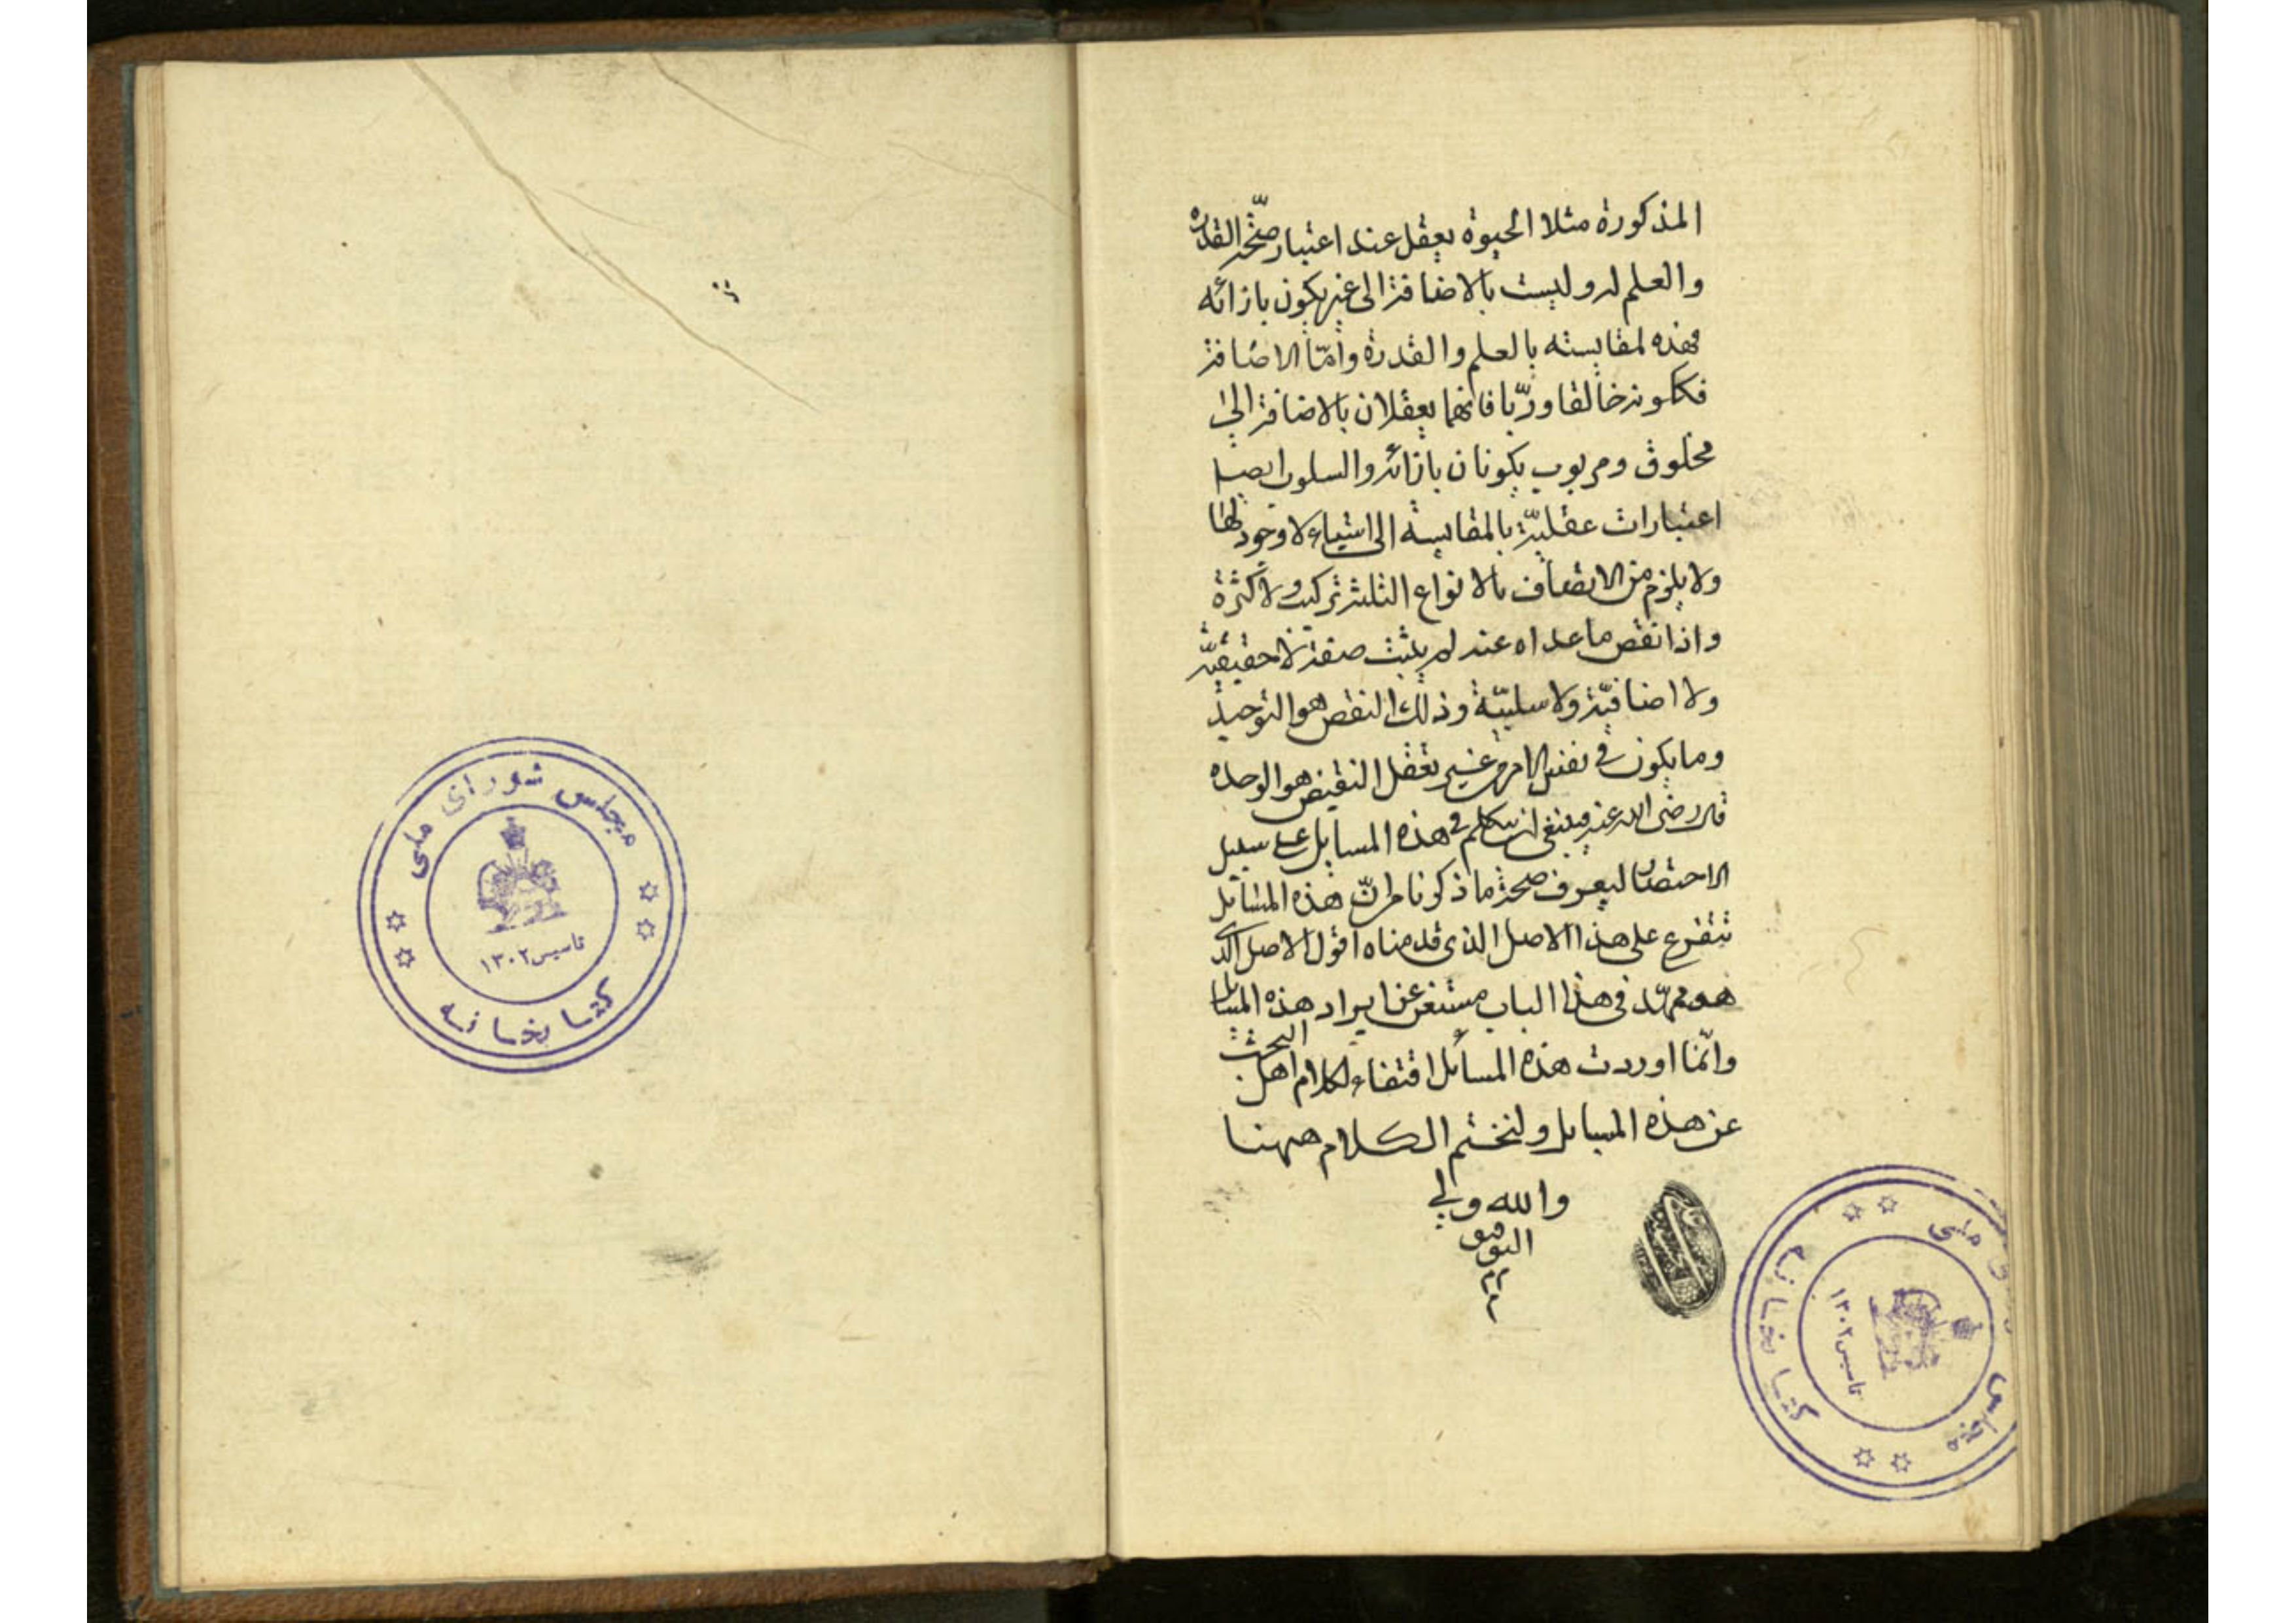 المذكورة مثلا الحيوة يعقل عند اعتبار صحّة القدرة
والعلم له وليست بالاضافة الى غير يكون بازائه
فهذه لمقايسته بالعلم والقدرة وأمّا الاضافة
فككونه خالقا وربّا فانهما يعقلان بالاضافة الى
مخلوق ومربوب يكونان بازائه والسلوب ايضا
اعتبارات عقليّة بالمقايسة الى اشياء لا وجود لها
ولا يلزم من الاتصاف بالانواع الثلثة تركيب ولا كثرة
واذا نقض ما عداه عنه لم يثبت صفة لا حقيقيّة
ولا اضافيّة ولا سلبيّة وذلك النقض هو التوحيد
وما يكون في نفس الامر من غير تعقل النقيض هو الوحدة
قال رضى الله عنه فينبغي ان نتكلم في هذه المسايل على سبيل
الاختصار ليعرف صحة ما ذكرنا من انّ هذه المسايل
تتفرع على هذا الاصل الذى قدمناه اقول الاصل الذى
هو ممهّد في هذا الباب مستغن عن ايراد هذه المسايل
وانّما اوردت هذه المسائل اقتفاء لكلام اهل البحث
عن هذه المسايل ولنختم الكلام ههنا
والله ولي
التوفيق
مجلس شورای ملی
کتابخانه
تاسیس ۱۳۰۲
ملی
مجلس
کتابخانه
تاسیس ۱۳۰۲